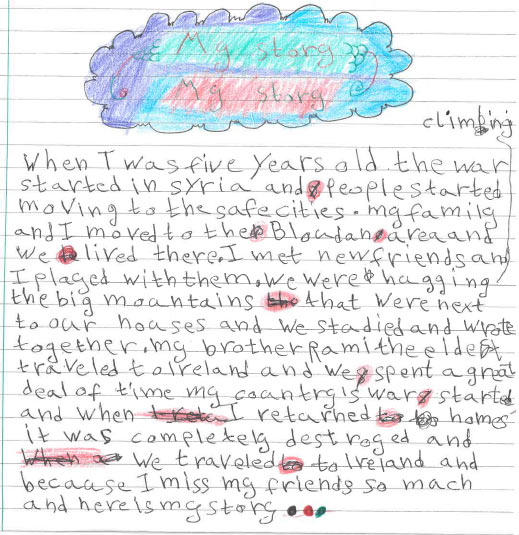 My story
My story
climbing
When I was five years old. the war
started in syria and people started
moving to the safe cities. my family
and I moved to the Bloudan area and
we lived there. I met new friends and
I played with them. we were hugging
the big mountains that were next
to our houses and we studied and wrote
together. my brother Rami the eldest
traveled to Ireland and we spent a great
deal of time my country's war started
and when I returned to homes
it was completely destroyed and
we traveled to Ireland and
because I miss my friends so much
and here is my story